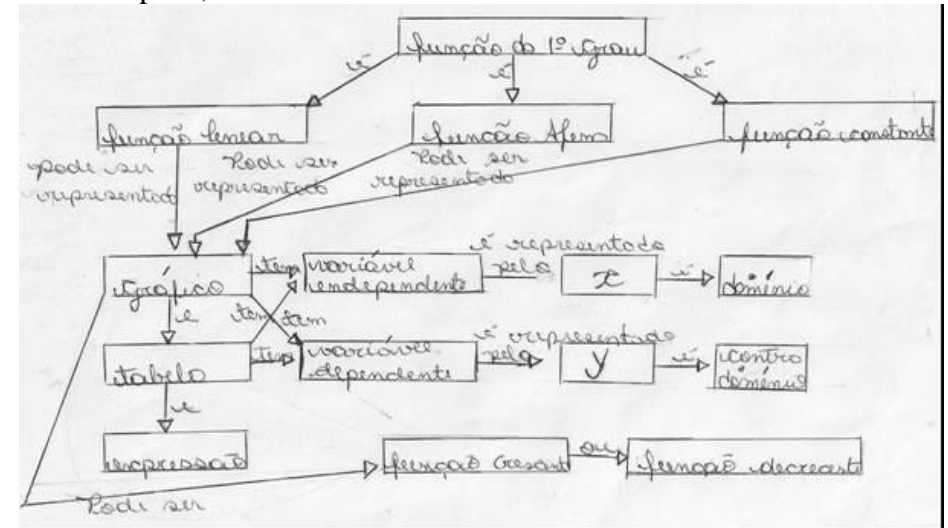 função do 1º Grau
é
é
é
função linear
função Afem
função constante
Pode ser
representado
Pode ser
representado
Pode ser
representado
Gráfico
tem
variável
independente
é representado
pela
x
é
domínio
e
tem
tem
tabela
tem
variável
dependente
é representado
pela
y
é
contra
domínio
e
expressão
função Cresent
ou
função decrecente
Pode ser